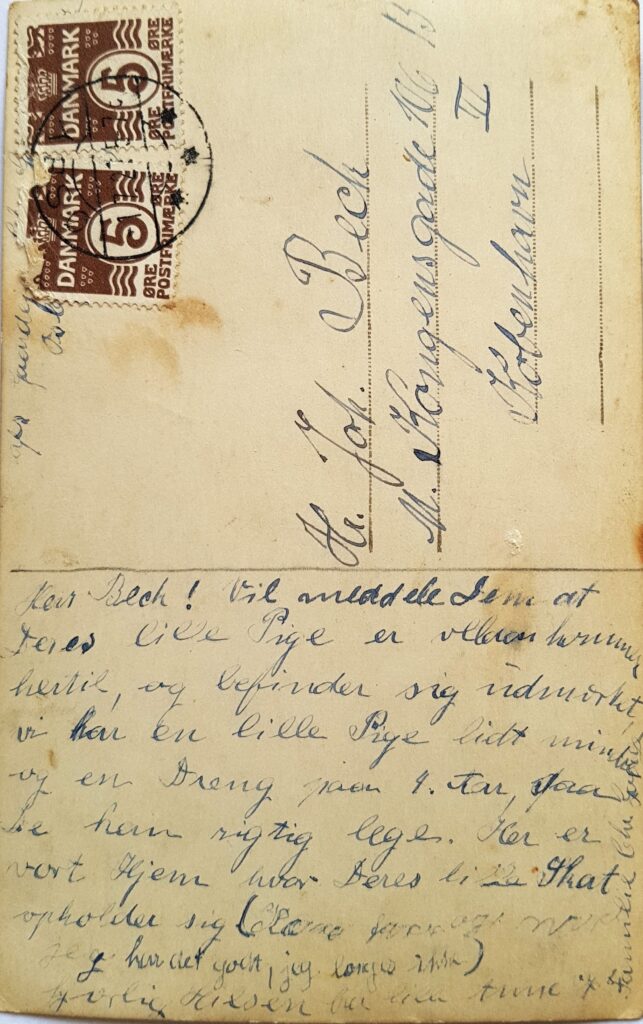 DANMARK
5
ØRE
POSTFRIMÆRKE
DANMARK
5
ØRE
POSTFRIMÆRKE
Hr. Joh. Bech
M. Kongensgade 106
II
København
Herr Bech! Vil meddele Dem at
Deres lille Pige er velankommen
hertil, og befinder sig udmærket,
vi har en lille Pige lidt mindre
og en Dreng paa 9. Aar, saa
De kan rigtig lege. Her er
vort Hjem hvor Deres lille Skat
opholder sig (
jeg har det godt, jeg længes ikke)
Hilsen